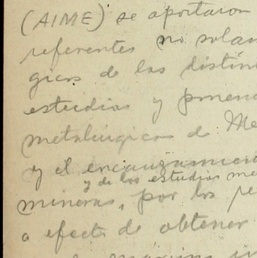 (AIME) se aportaron
referentes no solam
gicos de las distin
estudios y ponen
metalúrgicos de Me
y el encauzamiento
y de los estudios me
mineras, por los pe
a efecto de obtener